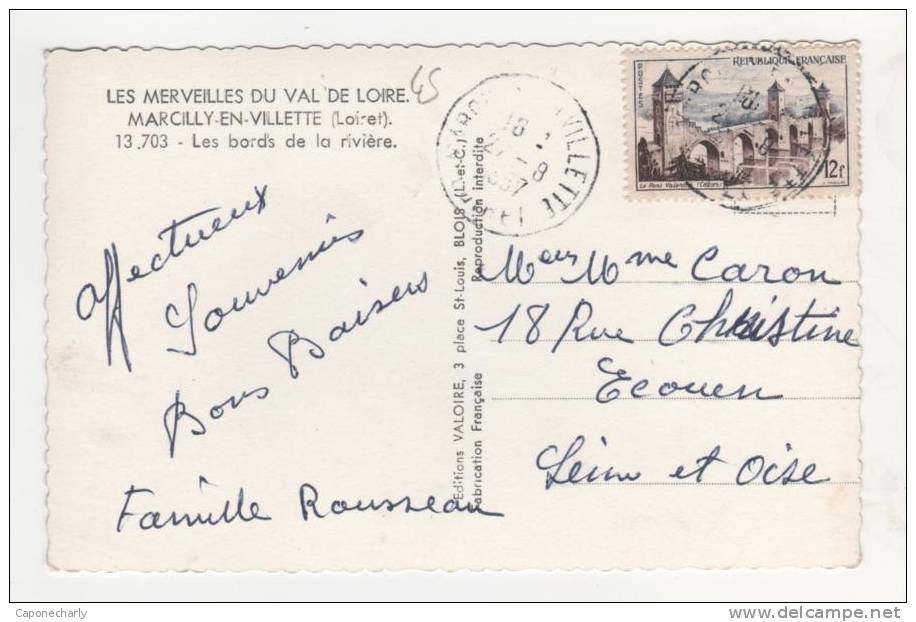 LES MERVEILLES DU VAL DE LOIRE.
MARCILLY-EN-VILLETTE (Loiret).
13.703 - Les bords de la rivière.
45
Affectueux
Souvenirs
Bons Baisers
Famille Rousseau
Editions VALOIRE, 3 place St-Louis, BLOIS (L.-et-C.)
Fabrication Française
Reproduction interdite
VILLETTE
18
POSTES
REPUBLIQUE FRANÇAISE
12f
Le Pont Valentré (Cahors)
Mr Mme Caron
18 Rue Christine
Ecouen
Seine et Oise
Caponecharly
delcampe.net